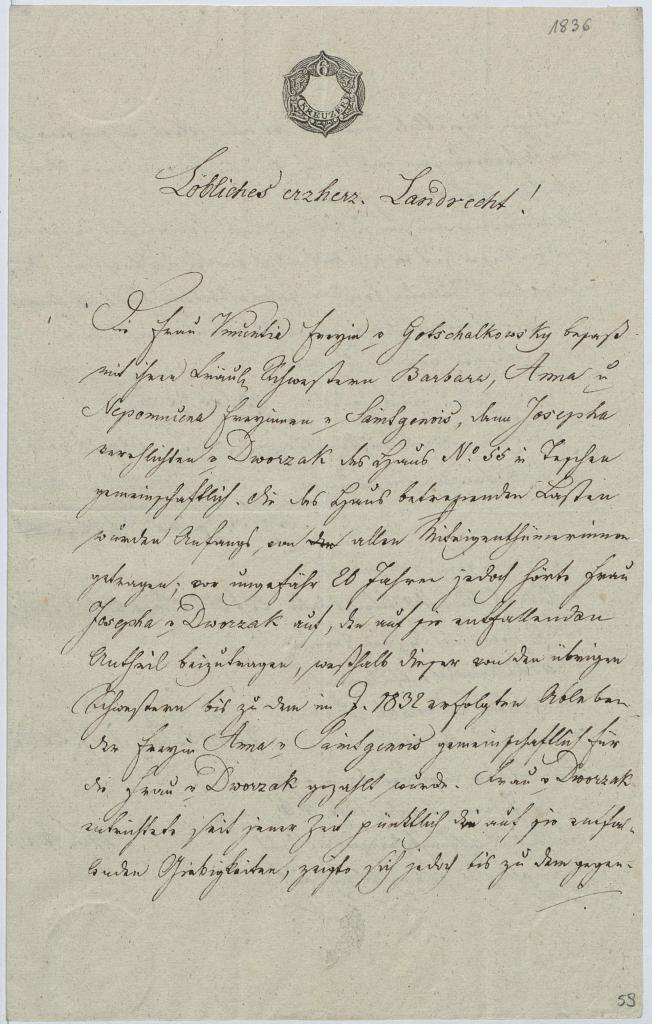 1836
6
KREUZER
Löbliches erzherz. Landrecht!
Die Frau Vinzentia Freyin v Gotschalkowsky besaß
mit ihren Fräul. Schwestern Barbara, Anna u
Nepomucena Freyinnen v Saintgenois, dann Josepha
verehlichten v Dworzak das Haus No 55 in Teschen
gemeinschaftlich. Die das Haus betreffenden Lasten
wurden Anfangs von den allen Miteigenthümerinnen
getragen; vor ungefähr 20 Jahren jedoch hörte Frau
Josepha v Dworzak auf, den auf sie entfallenden
Antheil beizutragen, weßhalb dieser von den übrigen
Schwestern bis zu dem im J. 1832 erfolgten Ableben
der Freyin Anna v Saintgenois gemeinschaftlich für
die Frau v Dworzak gezahlt wurde. Frau v Dworzak
entrichtete seit jener Zeit pünktlich die auf sie entfal-
lenden Giebigkeiten, zeigte sich jedoch bis zu dem gegen-
59